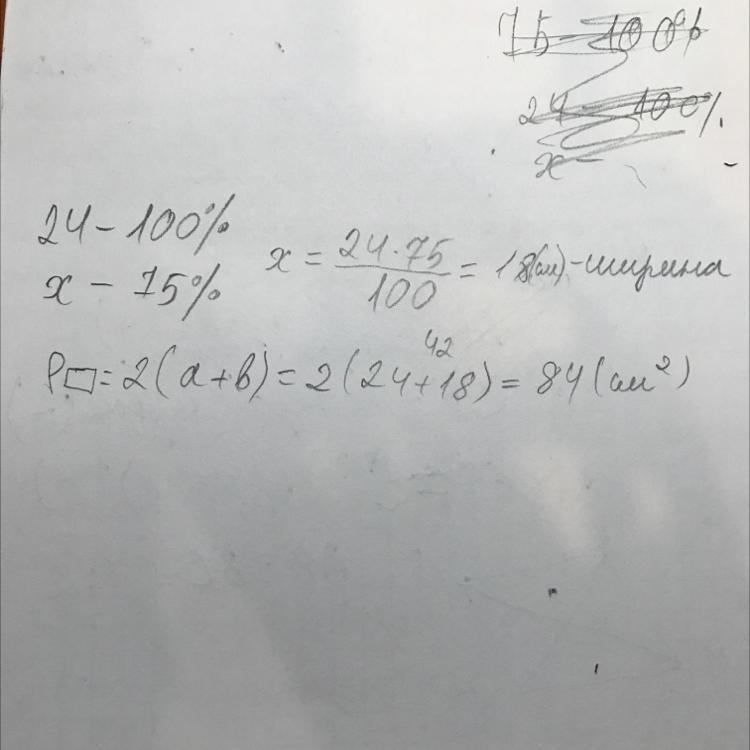 75 - 100%
24 - 100%
x -
24 - 100%
x - 75%
x = 24·75 / 100 = 18(см) - ширина
P▭ = 2(a+b) = 2(24+18) = 84(см²)
42